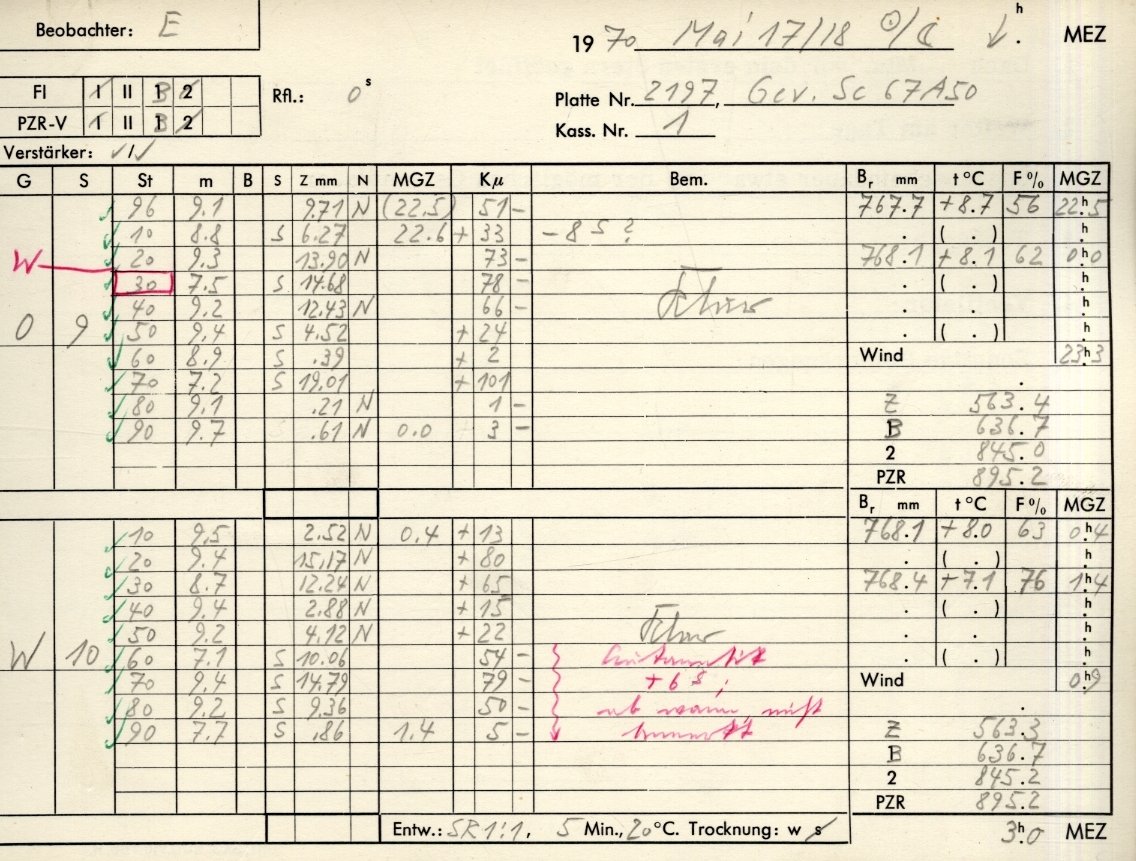 Beobachter: E
19 70 Mai 17/18 ☉/☾ h . MEZ
FI I II 1 2 Rfl.: 0 s
Platte Nr. 2197, Gev. Sc 67A50
PZR-V I II 1 2
Kass. Nr. 1
Verstärker: √/√
G S St m B S Z mm N MGZ Kμ Bem. Br mm t °C F % MGZ
96 9.1 9.71 N (22.5) 51 - 767.7 +8.7 56 22h5
10 8.8 S 6.27 22.6 + 33 - 8 s ? . ( . ) h
W 20 9.3 13.90 N 73 - 768.1 +8.1 62 0h0
30 7.5 S 14.68 78 - . ( . ) h
40 9.2 12.43 N 66 - . . h
O 9 50 9.4 S 4.52 + 24 . ( . ) h
60 8.9 S .39 + 2 Wind 23h3
70 7.2 S 19.01 + 101 .
80 9.1 .21 N 1 - Z 563.4
90 9.7 .61 N 0.0 3 - B 636.7
2 845.0
PZR 895.2
Br mm t °C F % MGZ
10 9.5 2.52 N 0.4 + 13 768.1 +8.0 63 0h4
20 9.4 15.17 N + 80 . ( . ) h
30 8.7 12.24 N + 65 768.4 +7.1 76 1h4
40 9.4 2.88 N + 15 . ( . ) h
50 9.2 4.12 N + 22 . . h
W 10 60 7.1 S 10.06 54 - . ( . ) h
70 9.4 S 14.79 79 - + 6 s; Wind 0h9
80 9.2 S 9.36 50 - ab wann nicht .
90 7.7 S .86 1.4 5 - Z 563.3
B 636.7
2 845.2
PZR 895.2
Entw.: SR 1:1, 5 Min., 20 °C. Trocknung: w s 3h0 MEZ